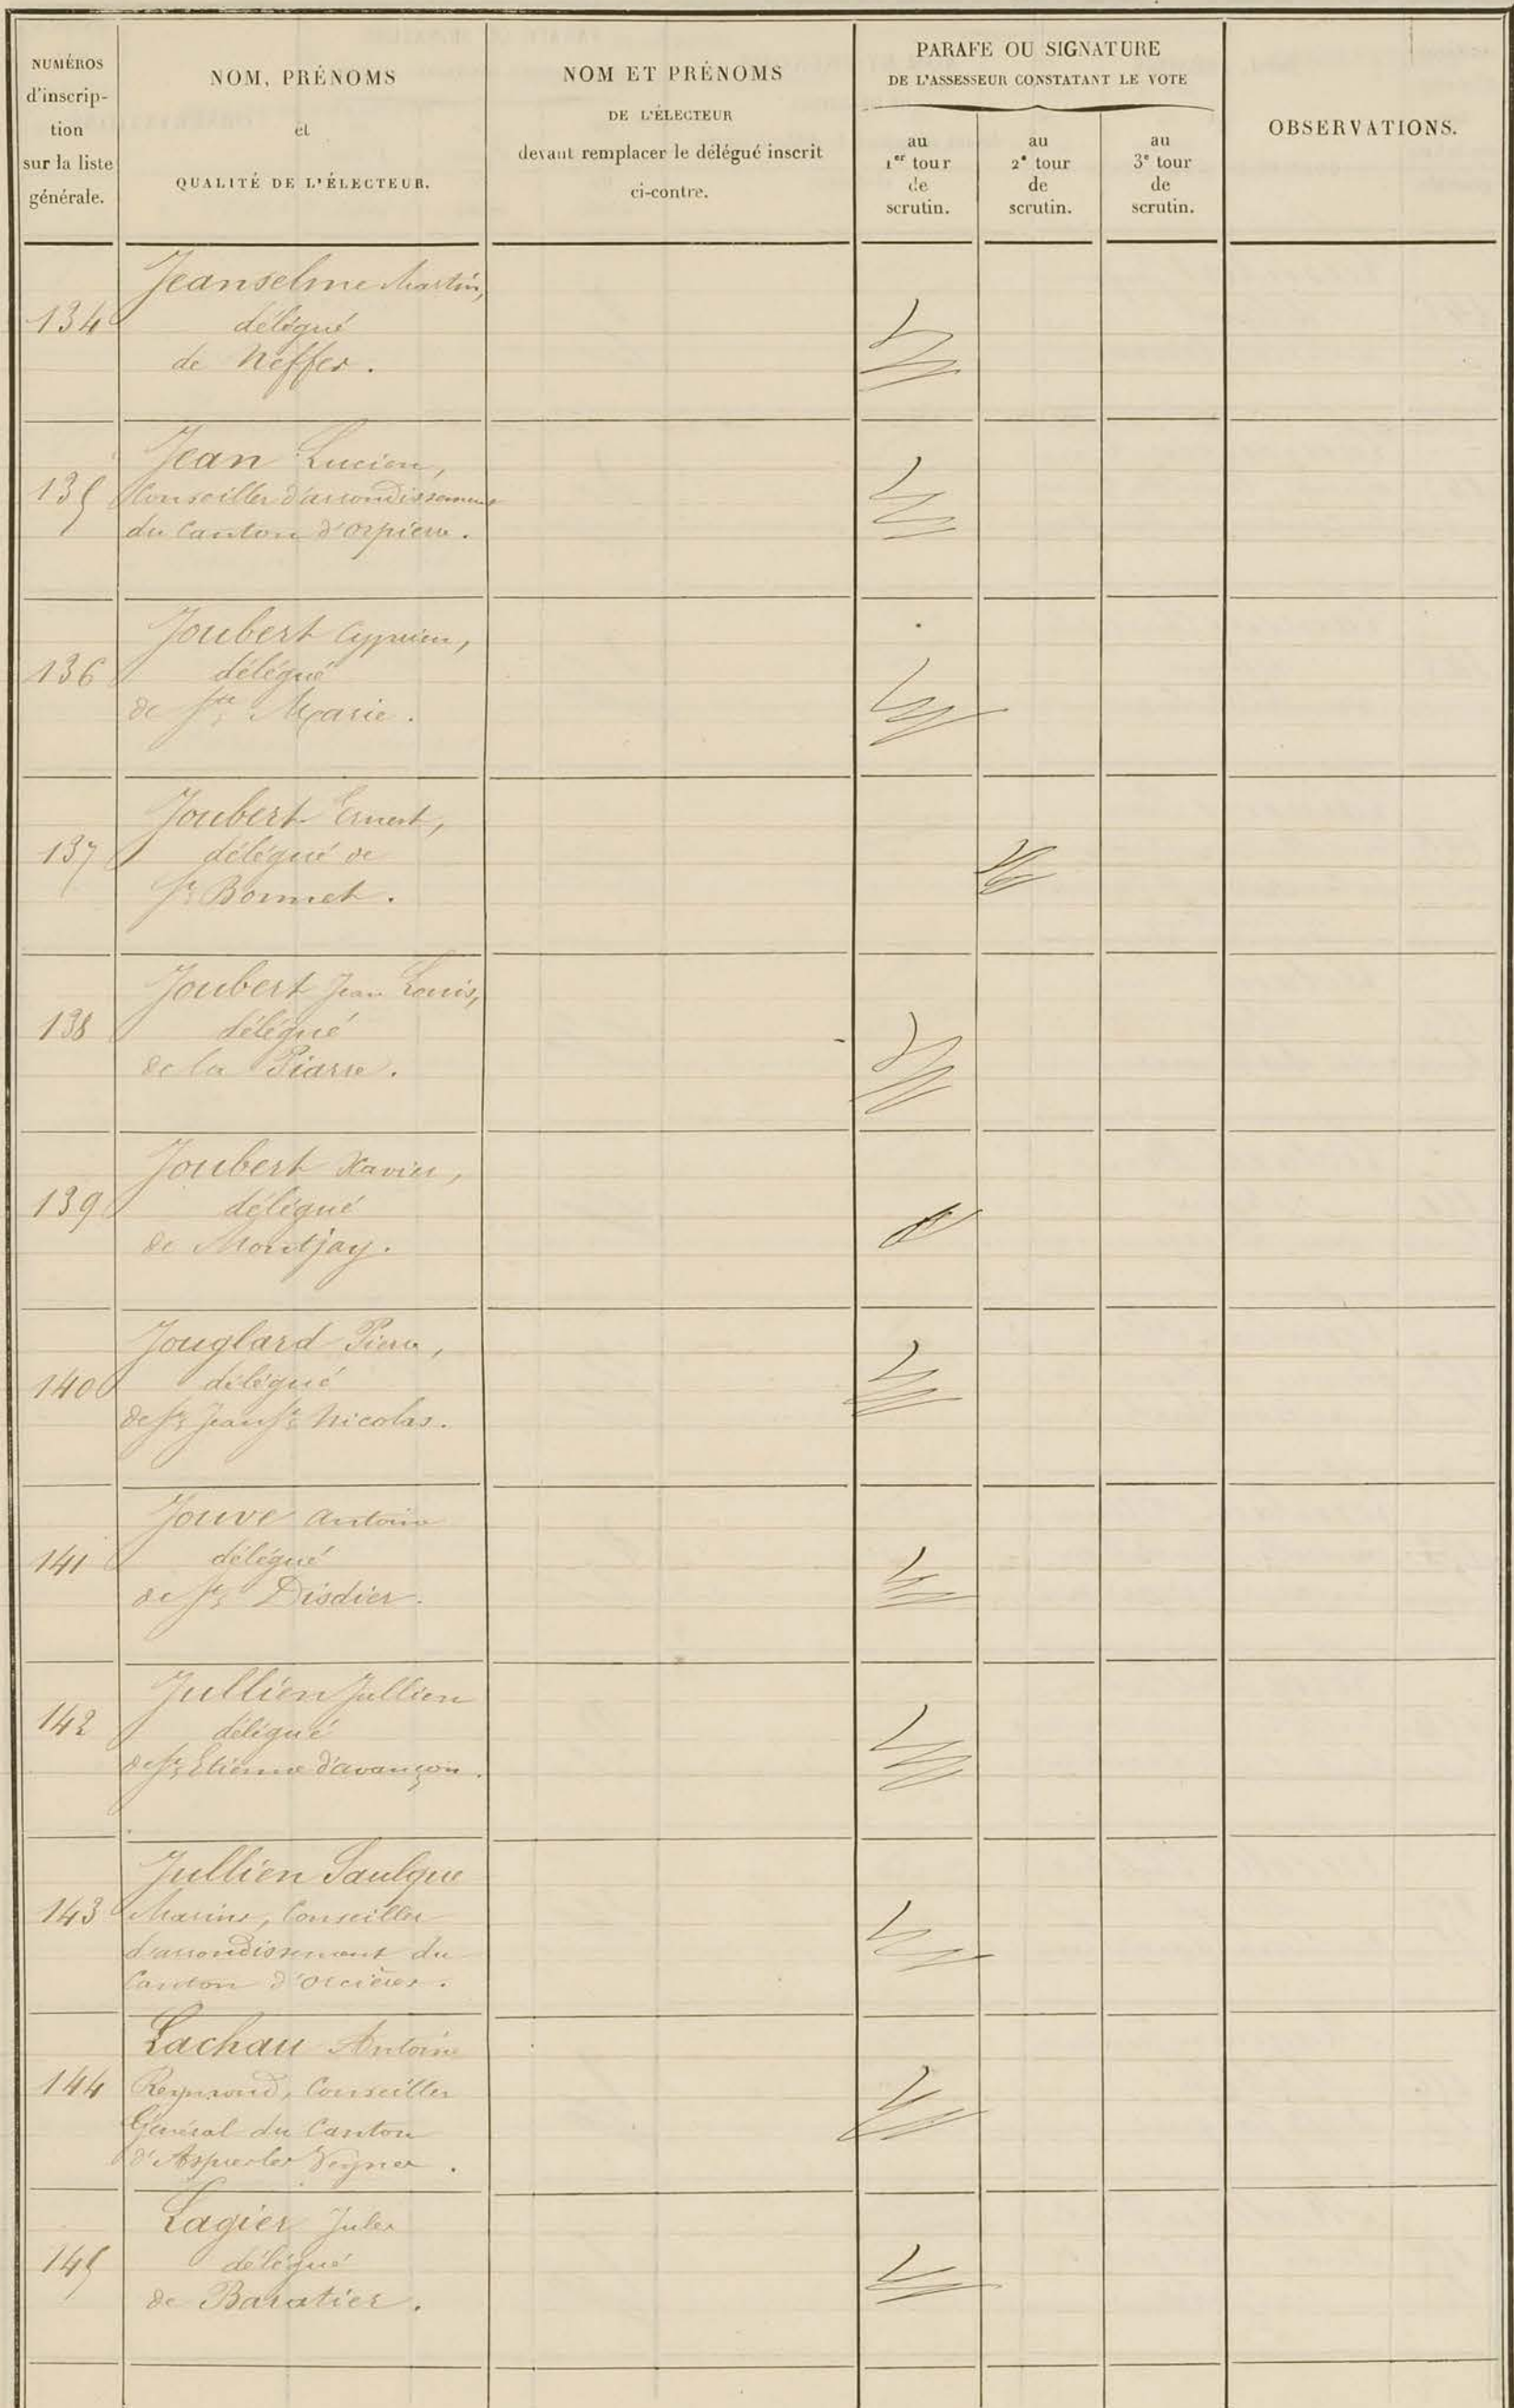 NUMÉROS
d'inscrip-
tion
sur la liste
générale.
NOM, PRÉNOMS
et
QUALITÉ DE L'ÉLECTEUR.
NOM ET PRÉNOMS
DE L'ÉLECTEUR
devant remplacer le délégué inscrit
ci-contre.
PARAFE OU SIGNATURE
DE L'ASSESSEUR CONSTATANT LE VOTE
au
1er tour
de
scrutin.
au
2e tour
de
scrutin.
au
3e tour
de
scrutin.
OBSERVATIONS.
Jeanselme Martin,
134 délégué
de Neffes.
Jean Lucien,
135 Conseiller d'arrondissement
du Canton d'Orpierre.
Joubert Cyprien,
136 délégué
de Ste Marie.
Joubert Ernest,
137 délégué de
St Bonnet.
Joubert Jean Louis,
138 délégué
de la Piarre.
Joubert Xavier,
139 délégué
de Montjay.
Jouglard Pierre,
140 délégué
de St Jean St Nicolas.
Jouve Antoine
141 délégué
de St Disdier.
Jullien Jullien
142 délégué
de St Etienne d'avançon.
Jullien Saulque
143 Marius, Conseiller
d'arrondissement du
Canton d'Orcières.
Lachau Antoine
144 Reymond, Conseiller
Général du Canton
d'Aspres les Veynes.
Lagier Jules
145 délégué
de Baratier.